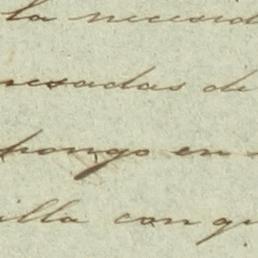 la necesid
resadas de
pongo en
illa con qu